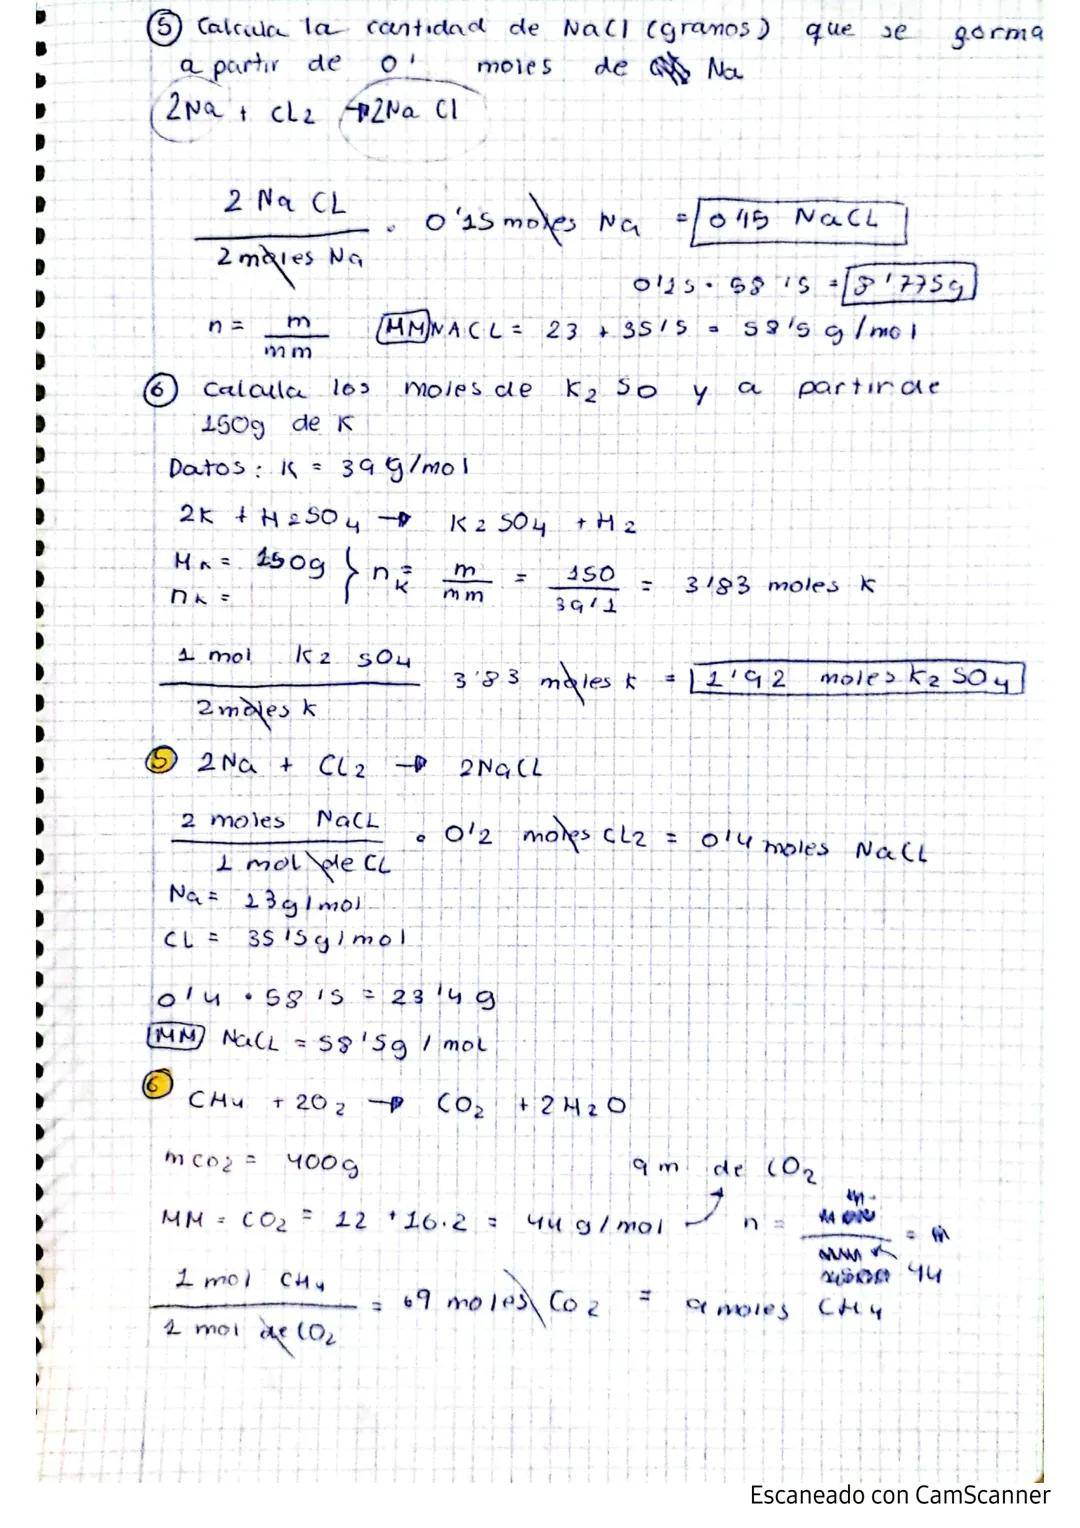 ⑤ Calcula la cantidad de NaCl (gramos) que se gorma
a partir de 0' moles de Na
2Na + CL2 → 2Na Cl
2 Na CL / 2 moles Na · 0'15 moles Na = 0'15 NaCL
0'15 · 58'5 = 8'775g
n = m / mm   MM NACL = 23 + 35'5 = 58'5 g/mol
⑥ Calcula los moles de K2 SO y a partir de
150g de K
Datos: K = 39 g/mol
2K + H2SO4 → K2SO4 + H2
MK = 150g } nK = m / mm = 150 / 39'1 = 3'83 moles K
nK =
1 mol K2 SO4 / 2 moles K 3'83 moles K = 1'92 moles K2 SO4
⑤ 2Na + CL2 → 2NaCL
2 moles NaCL / 1 mol de CL · 0'2 moles CL2 = 0'4 moles NaCL
Na = 23g/mol
CL = 35'5g/mol
0'4 · 58'5 = 23'4 g
MM NaCL = 58'5g / mol
⑥ CH4 + 2O2 → CO2 + 2H2O
mCO2 = 400g   9 m de CO2
MM = CO2 = 12 + 16·2 = 44 g/mol   n =
44
1 mol CH4 / 1 mol de CO2 = 9 moles CO2 = 9 moles CH4
Escaneado con CamScanner